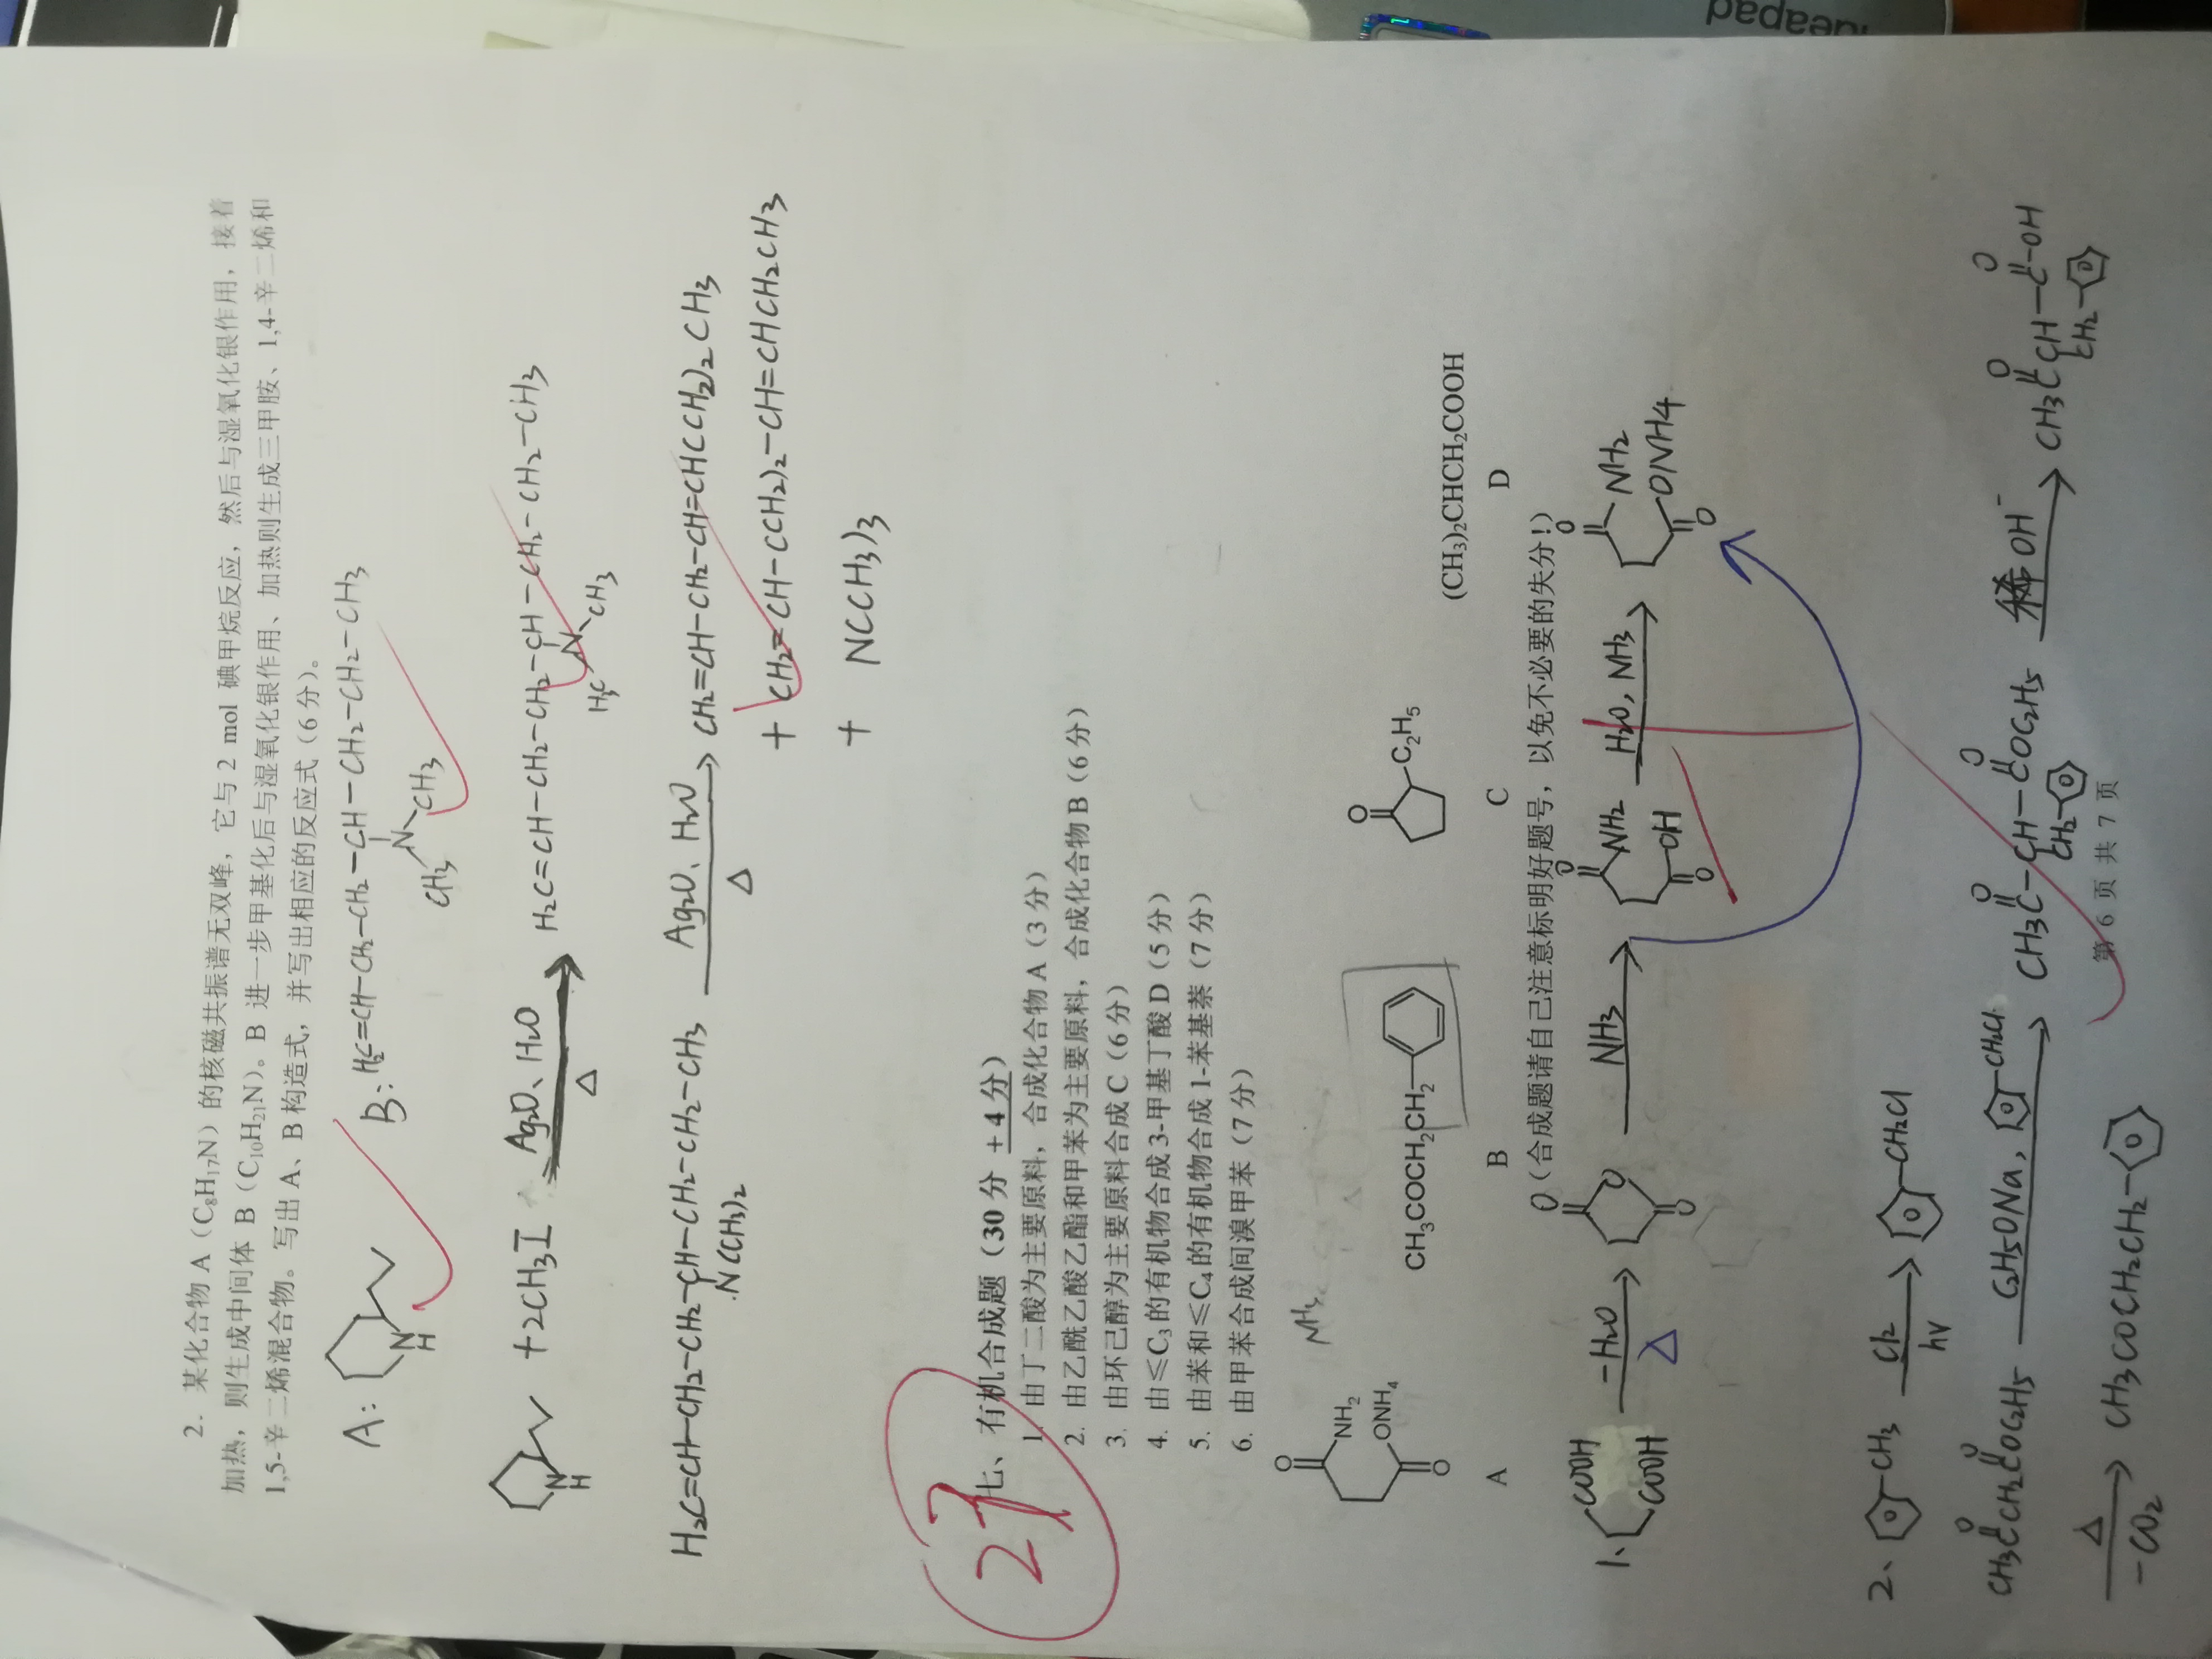 2. 某化合物 A（C₈H₁₇N）的核磁共振谱无双峰，它与 2 mol 碘甲烷反应，然后与湿氧化银作用，接着
加热，则生成中间体 B（C₁₀H₂₁N）。B 进一步甲基化后与湿氧化银作用、加热则生成三甲胺、1,4-辛二烯和
1,5-辛二烯混合物。写出 A、B 构造式，并写出相应的反应式（6 分）。
A: N H
B: H₂C=CH-CH₂-CH₂-CH-CH₂-CH₂-CH₃
CH₃ N CH₃
N H +2CH₃I Ag₂O、H₂O △ H₂C=CH-CH₂-CH₂-CH-CH₂-CH₂-CH₃
H₃C N CH₃
H₂C=CH-CH₂-CH₂-CH-CH₂-CH₂-CH₃ Ag₂O、H₂O △ CH₂=CH-CH₂-CH=CH(CH₂)₂CH₃
N(CH₃)₂
+ CH₂=CH-(CH₂)₂-CH=CHCH₂CH₃
+ N(CH₃)₃
27
七、有机合成题（30 分 ±4 分）
1. 由丁二酸为主要原料，合成化合物 A（3 分）
2. 由乙酰乙酸乙酯和甲苯为主要原料，合成化合物 B（6 分）
3. 由环己醇为主要原料合成 C（6 分）
4. 由≤C₃的有机物合成 3-甲基丁酸 D（5 分）
5. 由苯和≤C₄的有机物合成 1-苯基萘（7 分）
6. 由甲苯合成间溴甲苯（7 分）
O NH₂ ONH₄ O
CH₃COCH₂CH₂
O C₂H₅
(CH₃)₂CHCH₂COOH
A B C D
（合成题请自己注意标明好题号，以免不必要的失分!）
1、 COOH COOH -H₂O △ O O O NH₃ O NH₂ OH O H₂O, NH₃ O NH₂ ONH₄ O
2、 CH₃ Cl₂ hν CH₂Cl
CH₃CCH₂COC₂H₅ O O C₂H₅ONa, CH₂Cl CH₃C-CH-COC₂H₅ O O CH₂ 稀OH⁻ CH₃CCH-C-OH O O CH₂
△ -CO₂ CH₃COCH₂CH₂
第 6 页 共 7 页